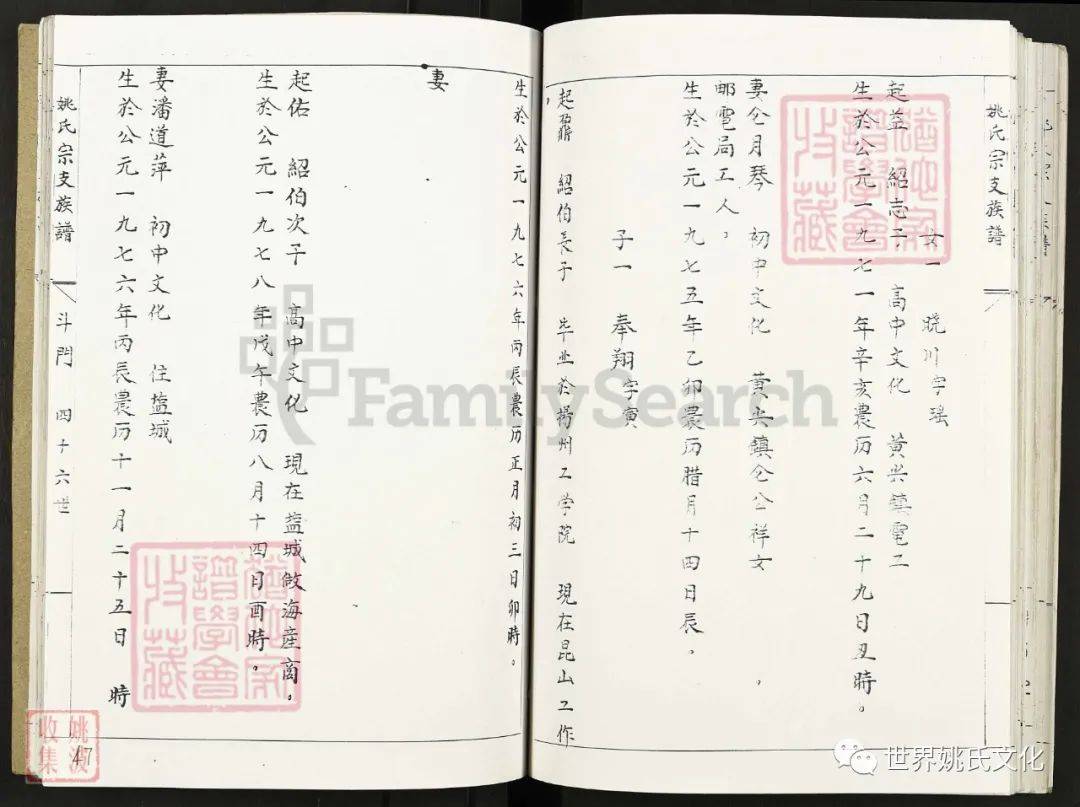 姚氏宗支族譜
女一 晓川字瑶
起益 紹志子 高中文化 黄尖鎮電工
生於公元一九七一年辛亥農历六月二十九日丑時。
妻仓月琴 初中文化 黄尖鎮仓公祥女
邮電局工人。
生於公元一九七五年乙卯農历腊月十四日辰。
子一 奉翔字寅
起鼐 紹伯長子 毕业於揚州工学院 現在昆山工作
生於公元一九七六年丙辰農历正月初三日卯時。
妻
起佑 紹伯次子 高中文化 現在盐城做海産商。
生於公元一九七八年戊午農历八月十四日酉時。
妻潘道萍 初中文化 住盐城
生於公元一九七六年丙辰農历十一月二十五日 時
姚氏宗支族譜 斗門 四十六世
47
收藏
譜學會
收藏
譜學會
姚波
收集
FamilySearch
世界姚氏文化